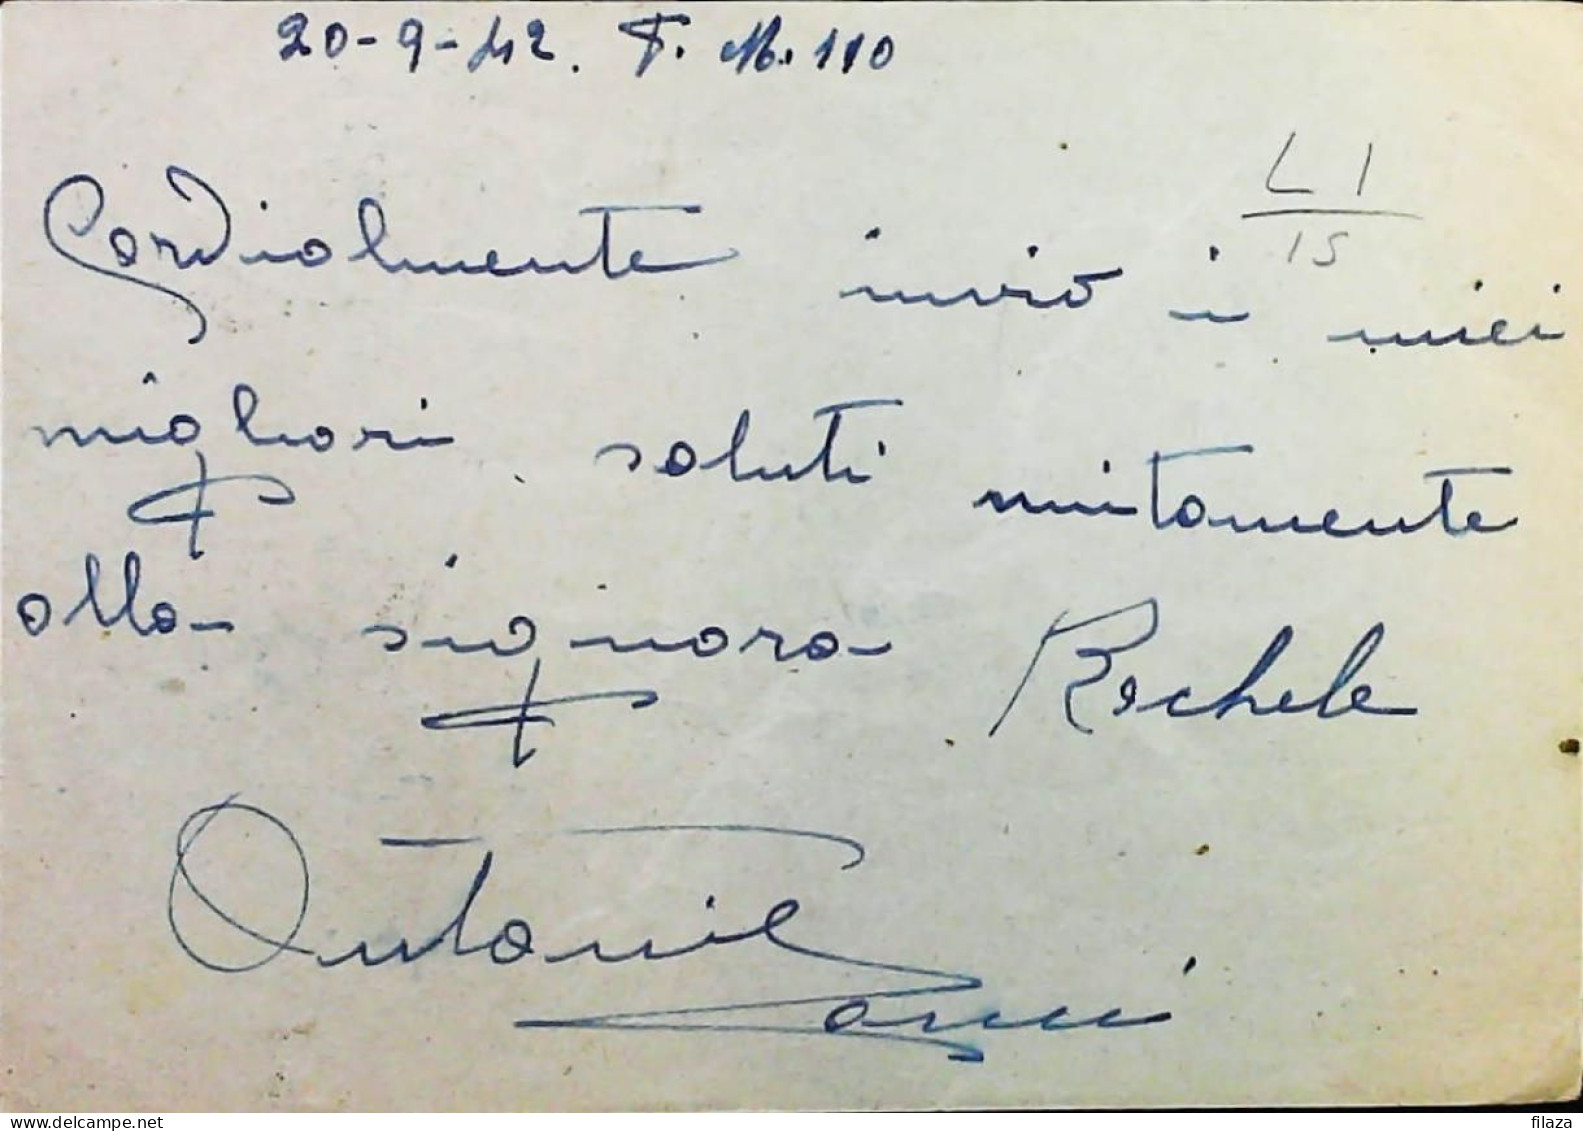 20-9-42. P. M. 110
L 1
15
Cordialmente invio i miei
migliori saluti unitamente
alla signora Rachele
Antonio
filaza